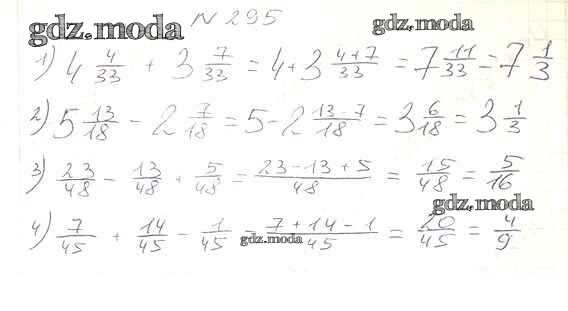 gdz.moda N 295 gdz.moda
1) 4 4/33 + 3 7/33 = 4+3 4+7/33 = 7 11/33 = 7 1/3
2) 5 13/18 - 2 7/18 = 5-2 13 7/18 = 3 6/18 = 3 1/3
3) 23/48 - 13/48 + 5/48 = 23-13+5/48 = 15/48 = 5/16
gdz.moda
4) 7/45 + 14/45 - 1/45 = 7+14-1/45 = 20/45 = 4/9
gdz.moda